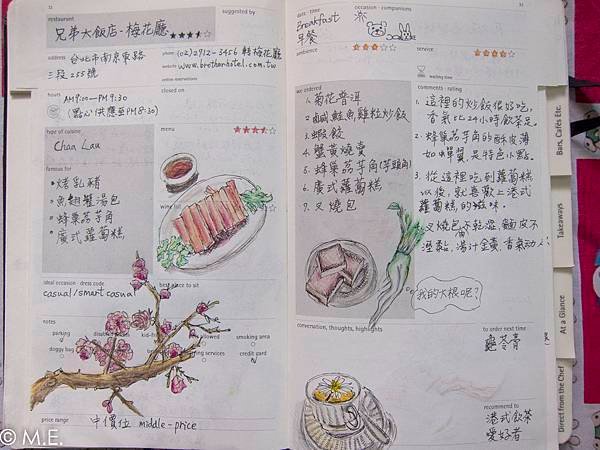 31
restaurant
suggested by
兄弟大飯店-梅花廳
address 台北市南京東路
三段255號
phone (02)2712-3456 轉梅花廳
website www.brotherhotel.com.tw
online reservations
hours
AM9:00—PM9:30
(點心供應至PM8:30)
closed on
type of cuisine
Chaa Lau
menu
famous for
烤乳豬
魚翅蟹湯包
蜂巢荔芋角
廣式蘿蔔糕
wine list
ideal occasion · dress code
casual/smart casual
best place to sit
notes
parking
smoking area
doggy bag
credit card
price range
中價位 middle-price
31
date · time
Breakfast
早餐
occasion · companions
ambience
service
waiting time
we ordered
1. 菊花普洱
2. 鹹鮭魚雞粒炒飯
3. 蝦餃
4. 蟹黃燒賣
5. 蜂巢荔芋角(芋頭角)
6. 廣式蘿蔔糕
7. 叉燒包
comments · rating
1. 這裡的炒飯很好吃,
香氣5匕24小時飲茶足。
2. 蜂巢荔芋角的酥皮薄
如蟬翼是特色小點。
3. 從這裡吃到蘿蔔糕
以後,就喜歡上港式
蘿蔔糕的滋味。
叉燒包不乾澀,麵皮不
溼黏,湯汁金黃,香氣動人。
我的大根呢?
conversation, thoughts, highlights
to order next time
龜苓膏
recommended to
港式飲茶
愛好者
Bars, Cafés Etc.
Takeaways
At a Glance
Direct from the Chef
© M.E.